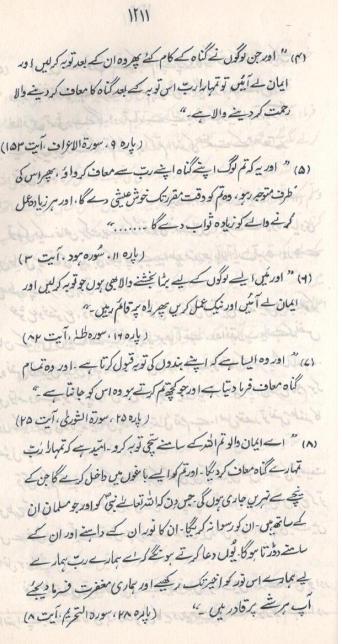 ۱۲۱۱
(۴) " اور جن لوگوں نے گناہ کے کام کئے پھر وہ ان کے بعد توبہ کر لیں اور
ایمان لے آئیں تو تمہارا رب اس توبہ کے بعد گناہ کا معاف کر دینے والا
رحمت کر دینے والا ہے۔"
(پارہ ۹، سورۃ الاعراف، آیت ۱۵۳)
(۵) " اور یہ کہ تم لوگ اپنے گناہ اپنے رب سے معاف کرواؤ، پھر اس کی
طرف متوجہ رہو، وہ تم کو وقت مقرر تک خوش عیشی دے گا، اور ہر زیادہ عمل
کرنے والے کو زیادہ ثواب دے گا ......."
(پارہ ۱۱، سورہ ہود، آیت ۳)
(۶) " اور میں ایسے لوگوں کے لیے بڑا بخشنے والا بھی ہوں جو توبہ کر لیں اور
ایمان لے آئیں اور نیک عمل کریں پھر راہ پر قائم رہیں۔"
(پارہ ۱۶، سورۃ طہٰ، آیت ۸۲)
(۷) " اور وہ ایسا ہے کہ اپنے بندوں کی توبہ قبول کرتا ہے۔ اور وہ تمام
گناہ معاف فرما دیتا ہے اور جو کچھ تم کرتے ہو وہ اس کو جانتا ہے۔"
(پارہ ۲۵، سورۃ الشوریٰ، آیت ۲۵)
(۸) " اے ایمان والو تم اللہ کے سامنے سچی توبہ کرو۔ امید ہے کہ تمہارا رب
تمہارے گناہ معاف کر دیگا۔ اور تم کو ایسے باغوں میں داخل کرے گا جن کے
نیچے نہریں جاری ہوں گی جس دن کہ اللہ تعالےٰ نبیؐ کو اور جو مسلمان ان
کے ساتھ ہیں۔ ان کو رسوا نہ کریگا۔ ان کا نور ان کے داہنے اور ان کے
سامنے دوڑتا ہو گا۔ یُوں دعا کرتے ہونگے کہ اے ہمارے رب ہمارے
لیے ہمارے اس نور کو اخیر تک رکھیے اور ہماری مغفرت فرما دیجئے
آپ ہر شے پر قادر ہیں۔" (پارہ ۲۸، سورۃ التحریم، آیت ۸)